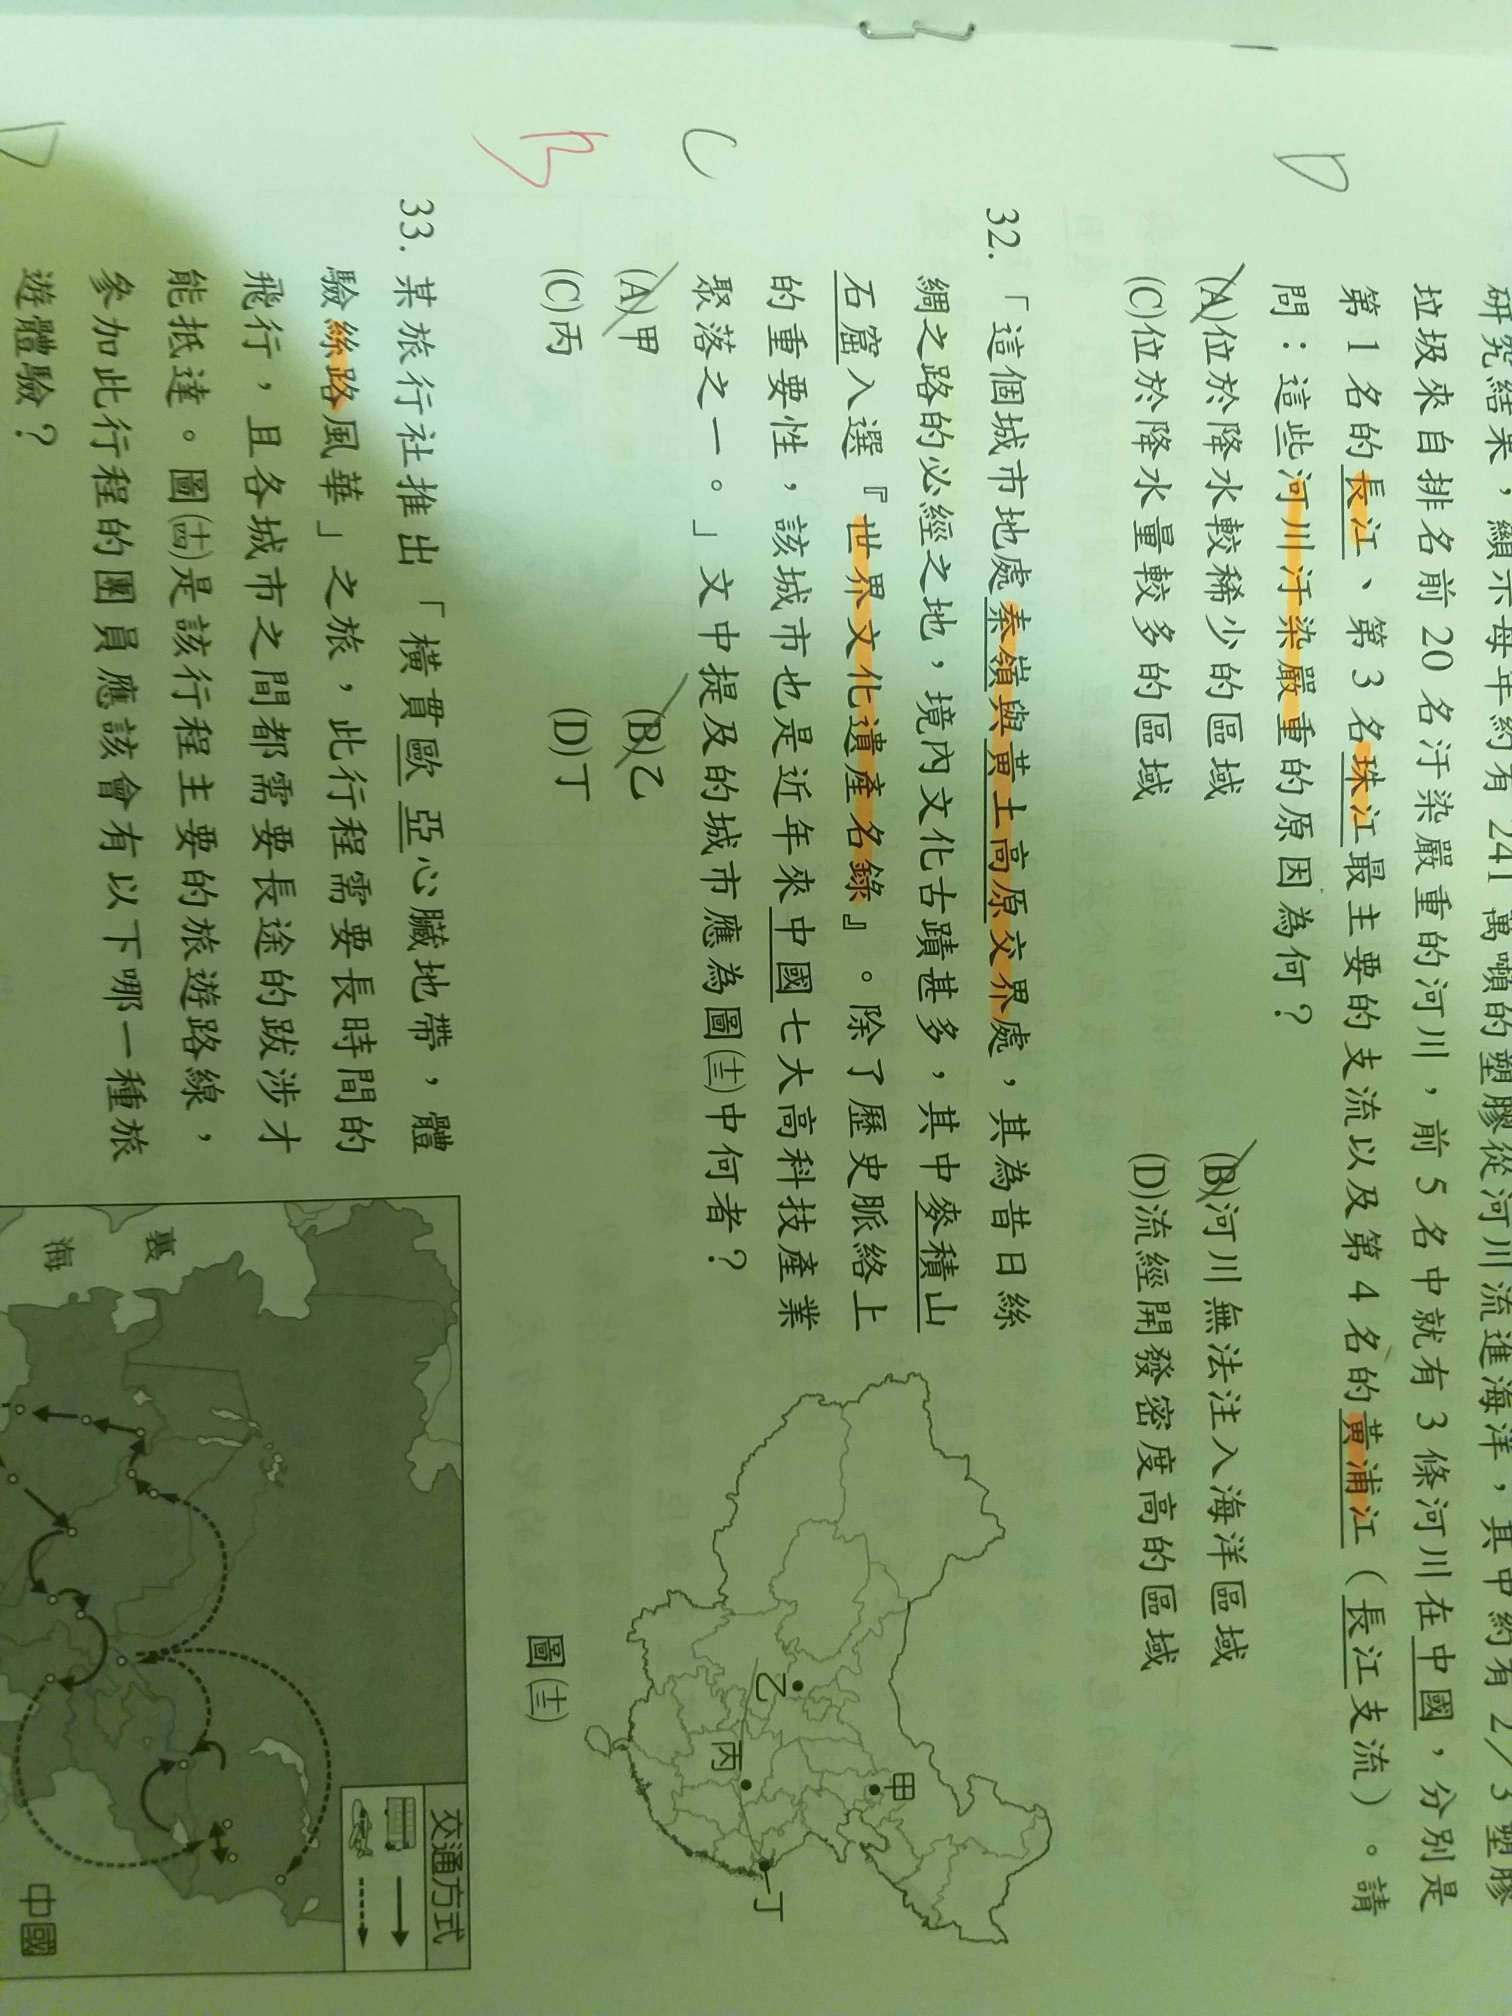 研究結果，顯示每年約有 241 萬噸的塑膠從河川流進海洋，其中約有 2／3 塑膠
垃圾來自排名前 20 名汙染嚴重的河川，前 5 名中就有 3 條河川在中國，分別是
第 1 名的長江、第 3 名珠江最主要的支流以及第 4 名的黃浦江（長江支流）。請
問：這些河川汙染嚴重的原因為何？
D
(A)位於降水較稀少的區域
(B)河川無法注入海洋區域
(C)位於降水量較多的區域
(D)流經開發密度高的區域
32. 「這個城市地處秦嶺與黃土高原交界處，其為昔日絲
綢之路的必經之地，境內文化古蹟甚多，其中麥積山
石窟入選『世界文化遺產名錄』。除了歷史脈絡上
的重要性，該城市也是近年來中國七大高科技產業
聚落之一。」文中提及的城市應為圖(十三)中何者？
C
B
(A)甲
(B)乙
(C)丙
(D)丁
甲
乙
丙
丁
圖(十三)
33. 某旅行社推出「橫貫歐亞心臟地帶，體
驗絲路風華」之旅，此行程需要長時間的
飛行，且各城市之間都需要長途的跋涉才
能抵達。圖(十四)是該行程主要的旅遊路線，
參加此行程的團員應該會有以下哪一種旅
遊體驗？
D
交通方式
裏
海
中國